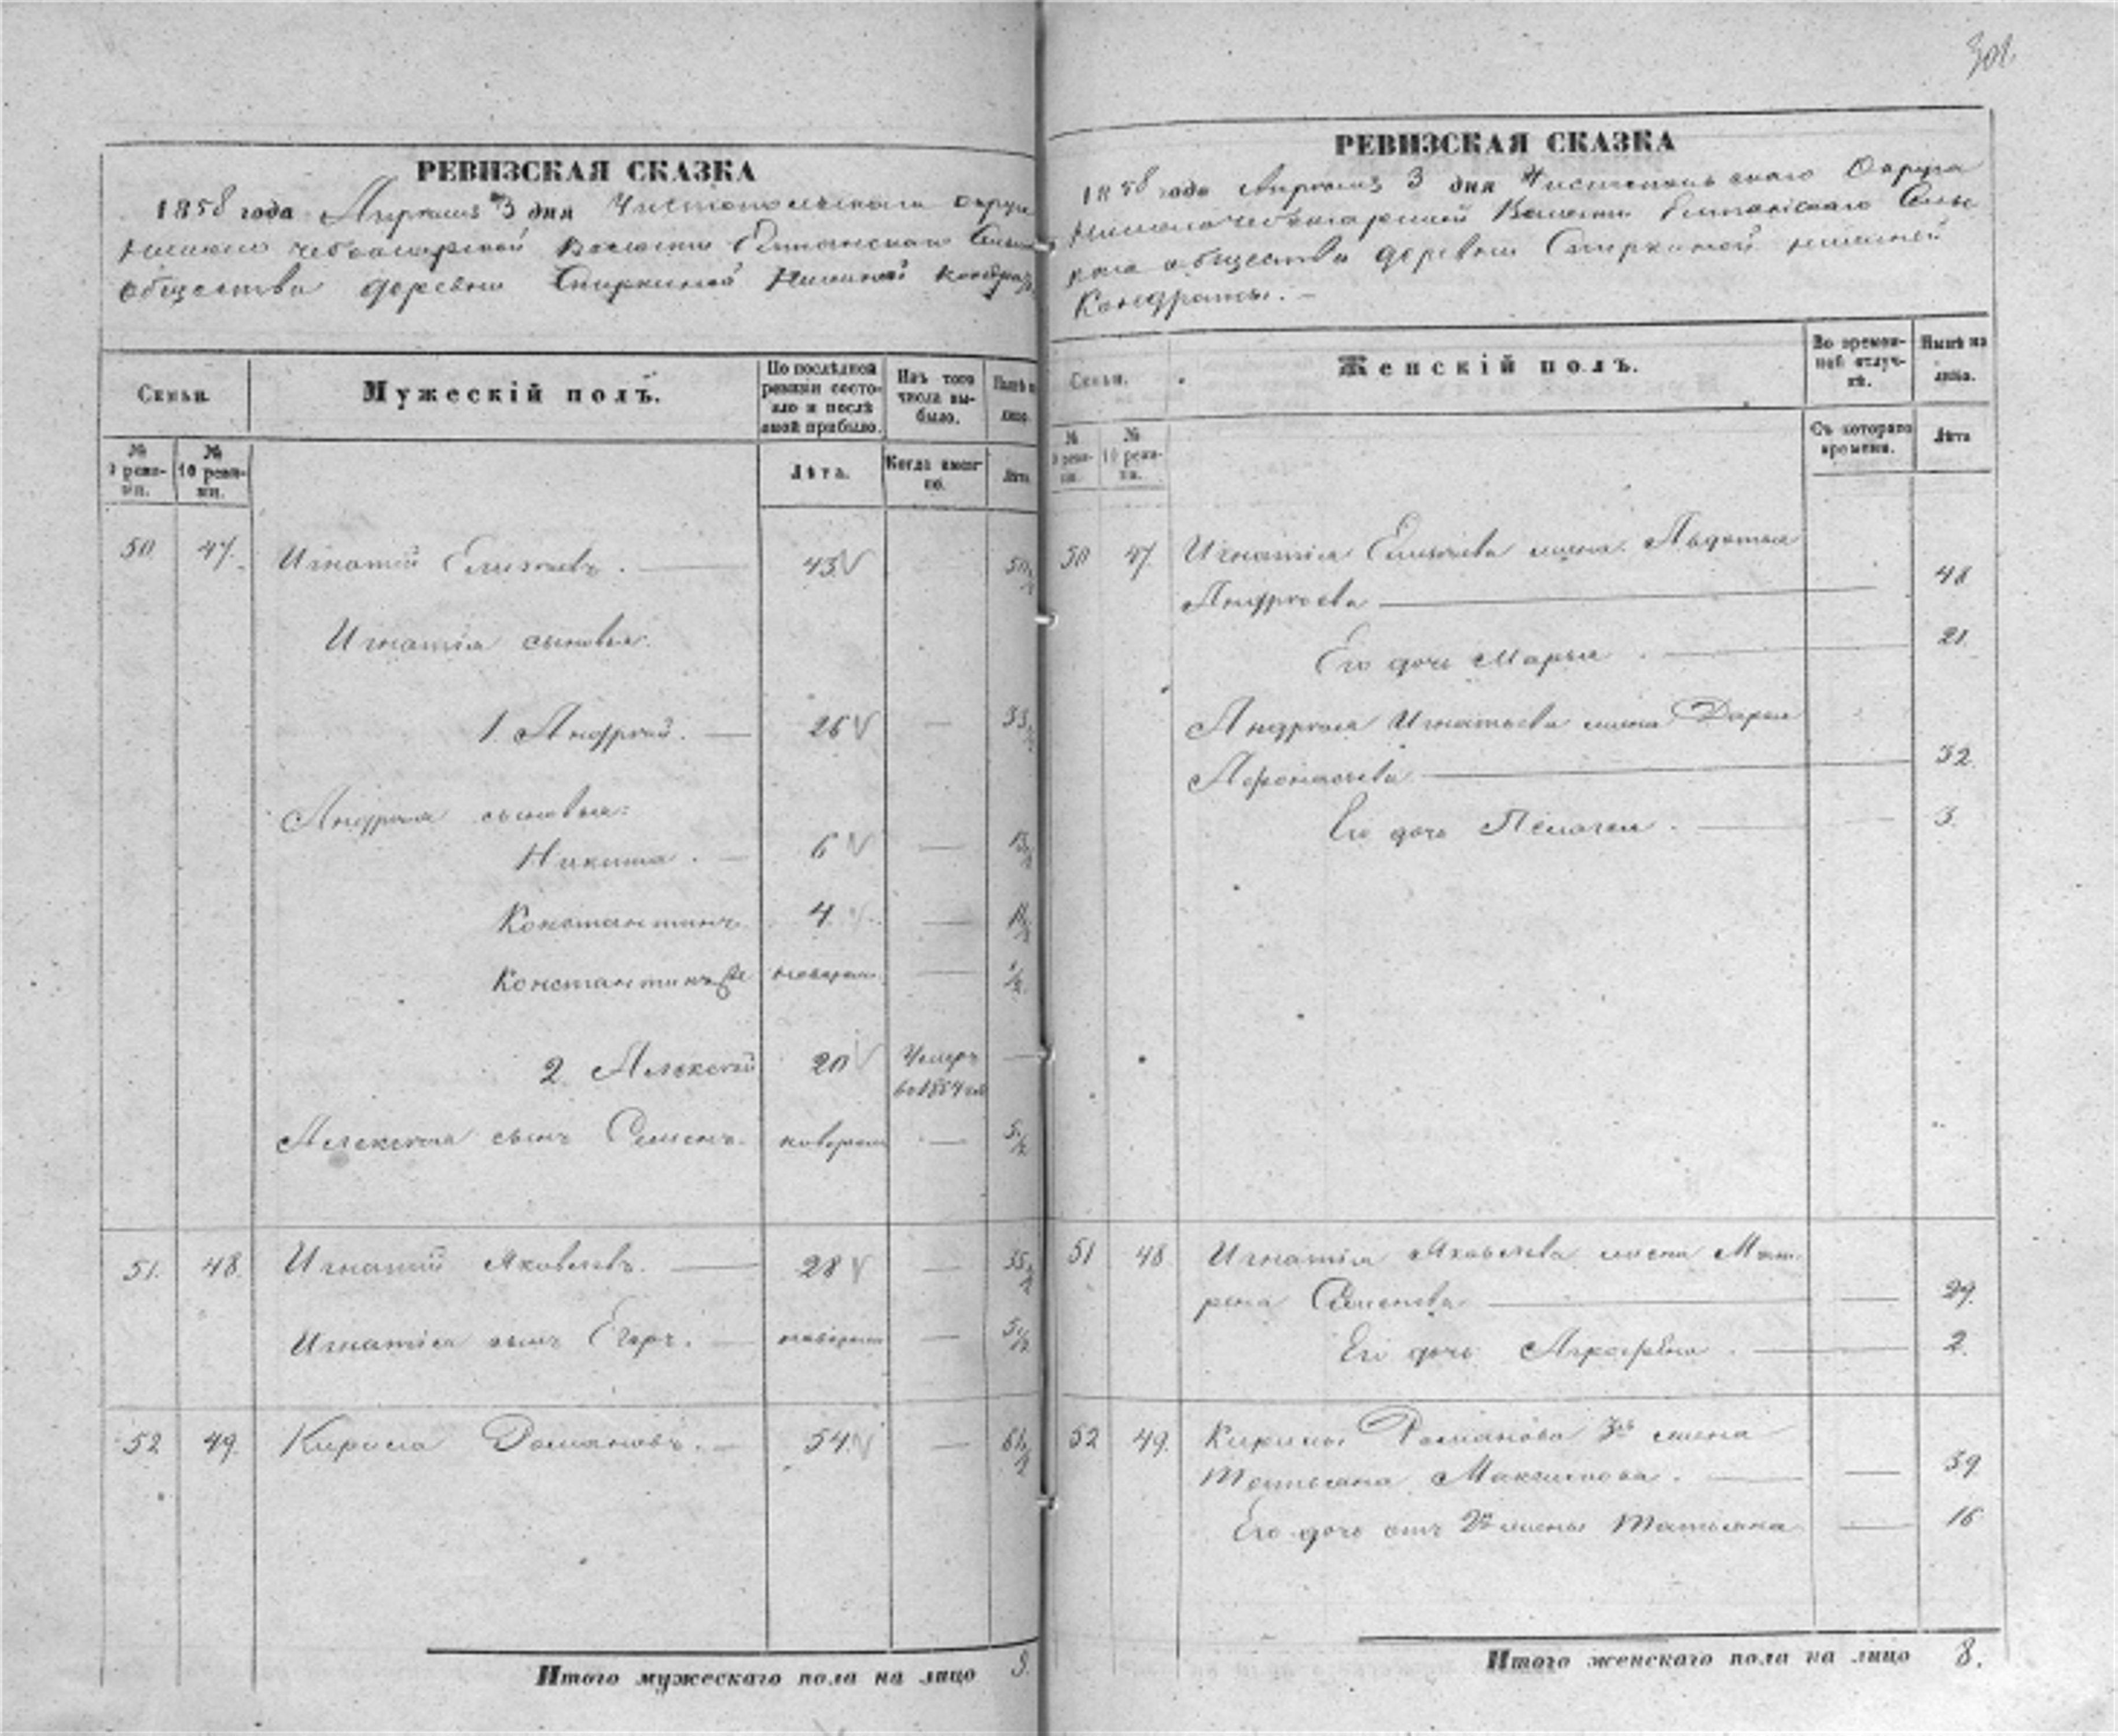 301
РЕВИЗСКАЯ СКАЗКА
1858 года Апреля 3 дня Чистопольскаго округа
общества деревни Спиркиной Нижней Кондраты
Семьи.
Мужескій полъ.
По послѣдней ревизіи состояло и послѣ оной прибыло.
Изъ того числа выбыло.
Нынѣ на лицо.
№ 9 ревизіи.
№ 10 ревизіи.
Лѣта.
Когда именно.
Лѣта.
50 47. Игнатій Елисѣевъ. 43 50 1/2
Игнатія сыновья:
1. Андрей. 26 — 33 1/2
Андрея сыновья:
Никита. 6 — 13 1/2
Константинъ 4. — 11 1/2
Константинъ 2й новорож. —
2. Алексѣй 20 Умеръ —
въ 1854 год
Алексѣя сынъ Семенъ. новорож — 5 1/2
51. 48. Игнатій Яковлевъ. 28 — 35 1/2
Игнатія сынъ Егоръ. новорожд — 5 1/2
52 49. Кирила Домановъ. 54 — 61 1/2
Итого мужескаго пола на лицо 9.
РЕВИЗСКАЯ СКАЗКА
1858 года Апреля 3 дня Чистопольскаго Округа
каго общества деревни Спиркиной нижней
Кондраты. —
Семьи.
Женскій полъ.
Во временной отлучкѣ.
Нынѣ на лицо.
№ 9 ревизіи.
№ 10 ревизіи.
Съ котораго времени.
Лѣта
50 47. Игнатія Елисѣева жена Авдотья
Андреева 48
Его дочь Марья. 21.
Андрея Игнатьева жена Дарья
Афонасьева 32.
Его дочь Пелагея. 3.
51 48 Игнатія Яковлева жена Мат-
рена Семенова — 29.
Его дочь Агрефена. 2.
52 49. Кирилы Романова 3я жена
Татьяна Максимова. — 39
Его дочь отъ 2й жены Татьяна — 16
Итого женскаго пола на лицо 8.